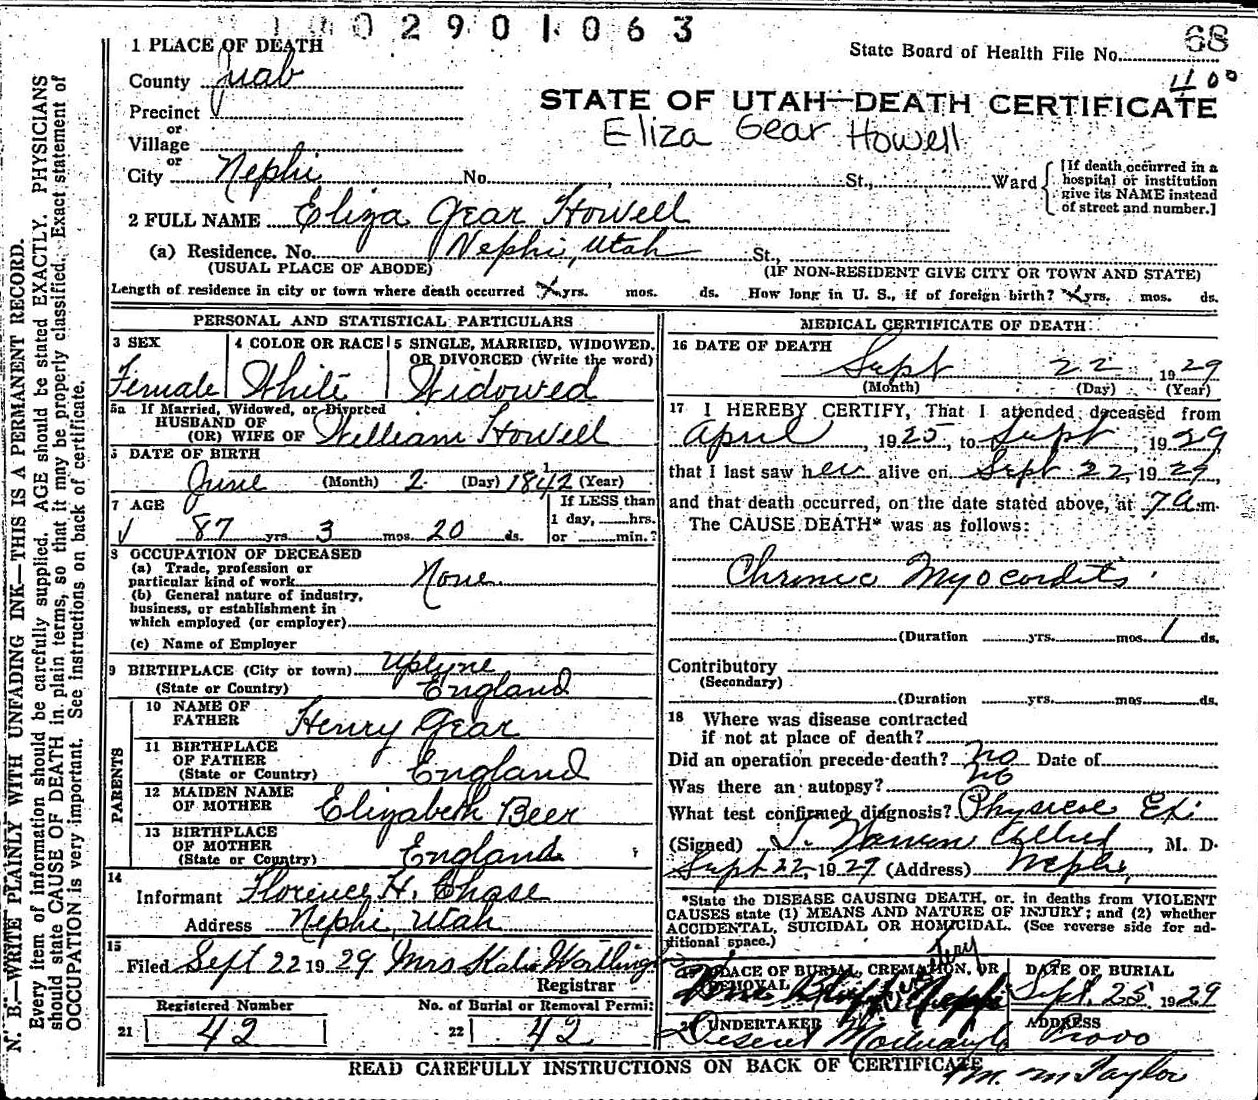 1002901063
68
State Board of Health File No.
400
1 PLACE OF DEATH
County Juab
Precinct
or
Village
or
City Nephi No. St., Ward
[If death occurred in a
hospital or institution
give its NAME instead
of street and number.]
STATE OF UTAH—DEATH CERTIFICATE
Eliza Gear Howell
2 FULL NAME Eliza Gear Howell
(a) Residence. No. Nephi, Utah St.,
(USUAL PLACE OF ABODE) (IF NON-RESIDENT GIVE CITY OR TOWN AND STATE)
Length of residence in city or town where death occurred x yrs. mos. ds. How long in U. S., if of foreign birth? x yrs. mos. ds.
PERSONAL AND STATISTICAL PARTICULARS
3 SEX
Female
4 COLOR OR RACE
White
5 SINGLE, MARRIED, WIDOWED,
OR DIVORCED (Write the word)
Widowed
5a If Married, Widowed, or Divorced
HUSBAND OF
(OR) WIFE OF William Howell
6 DATE OF BIRTH
June (Month) 2 (Day) 1842 (Year)
7 AGE
87 yrs. 3 mos. 20 ds.
If LESS than
1 day, hrs.
or min.?
8 OCCUPATION OF DECEASED
(a) Trade, profession or
particular kind of work None
(b) General nature of industry,
business, or establishment in
which employed (or employer)
(c) Name of Employer
9 BIRTHPLACE (City or town) Uplyne
(State or Country) England
PARENTS
10 NAME OF
FATHER Henry Gear
11 BIRTHPLACE
OF FATHER
(State or Country) England
12 MAIDEN NAME
OF MOTHER Elizabeth Beer
13 BIRTHPLACE
OF MOTHER
(State or Country) England
14
Informant Florence H. Chase
Address Nephi, Utah
15
Filed Sept 22 1929 Mrs Katie Worthing
Registrar
Registered Number No. of Burial or Removal Permit
21 42 22 42
MEDICAL CERTIFICATE OF DEATH
16 DATE OF DEATH
Sept 22 1929
(Month) (Day) (Year)
17 I HEREBY CERTIFY, That I attended deceased from
April, 1925, to Sept, 1929
that I last saw her alive on Sept 22, 1929,
and that death occurred, on the date stated above, at 7 a.m.
The CAUSE DEATH* was as follows:
Chronic Myocordits
(Duration yrs. mos. 1 ds.
Contributory
(Secondary)
(Duration yrs. mos. ds.
18 Where was disease contracted
if not at place of death?
Did an operation precede death? no Date of
Was there an autopsy? no
What test confirmed diagnosis? Physical Ex
(Signed) Allred, M. D.
Sept 22, 1929 (Address) Nephi,
*State the DISEASE CAUSING DEATH, or, in deaths from VIOLENT
CAUSES state (1) MEANS AND NATURE OF INJURY; and (2) whether
ACCIDENTAL, SUICIDAL OR HOMICIDAL. (See reverse side for ad-
ditional space.)
19 PLACE OF BURIAL, CREMATION, OR
REMOVAL
Cemetery
Nephi
DATE OF BURIAL
Sept. 25 1929
20 UNDERTAKER
Deseret Mortuary
ADDRESS
Provo
READ CAREFULLY INSTRUCTIONS ON BACK OF CERTIFICATE
Taylor
N. B.—WRITE PLAINLY WITH UNFADING INK—THIS IS A PERMANENT RECORD.
Every item of information should be carefully supplied. AGE should be stated EXACTLY. PHYSICIANS
should state CAUSE OF DEATH in plain terms, so that it may be properly classified. Exact statement of
OCCUPATION is very important. See instructions on back of certificate.